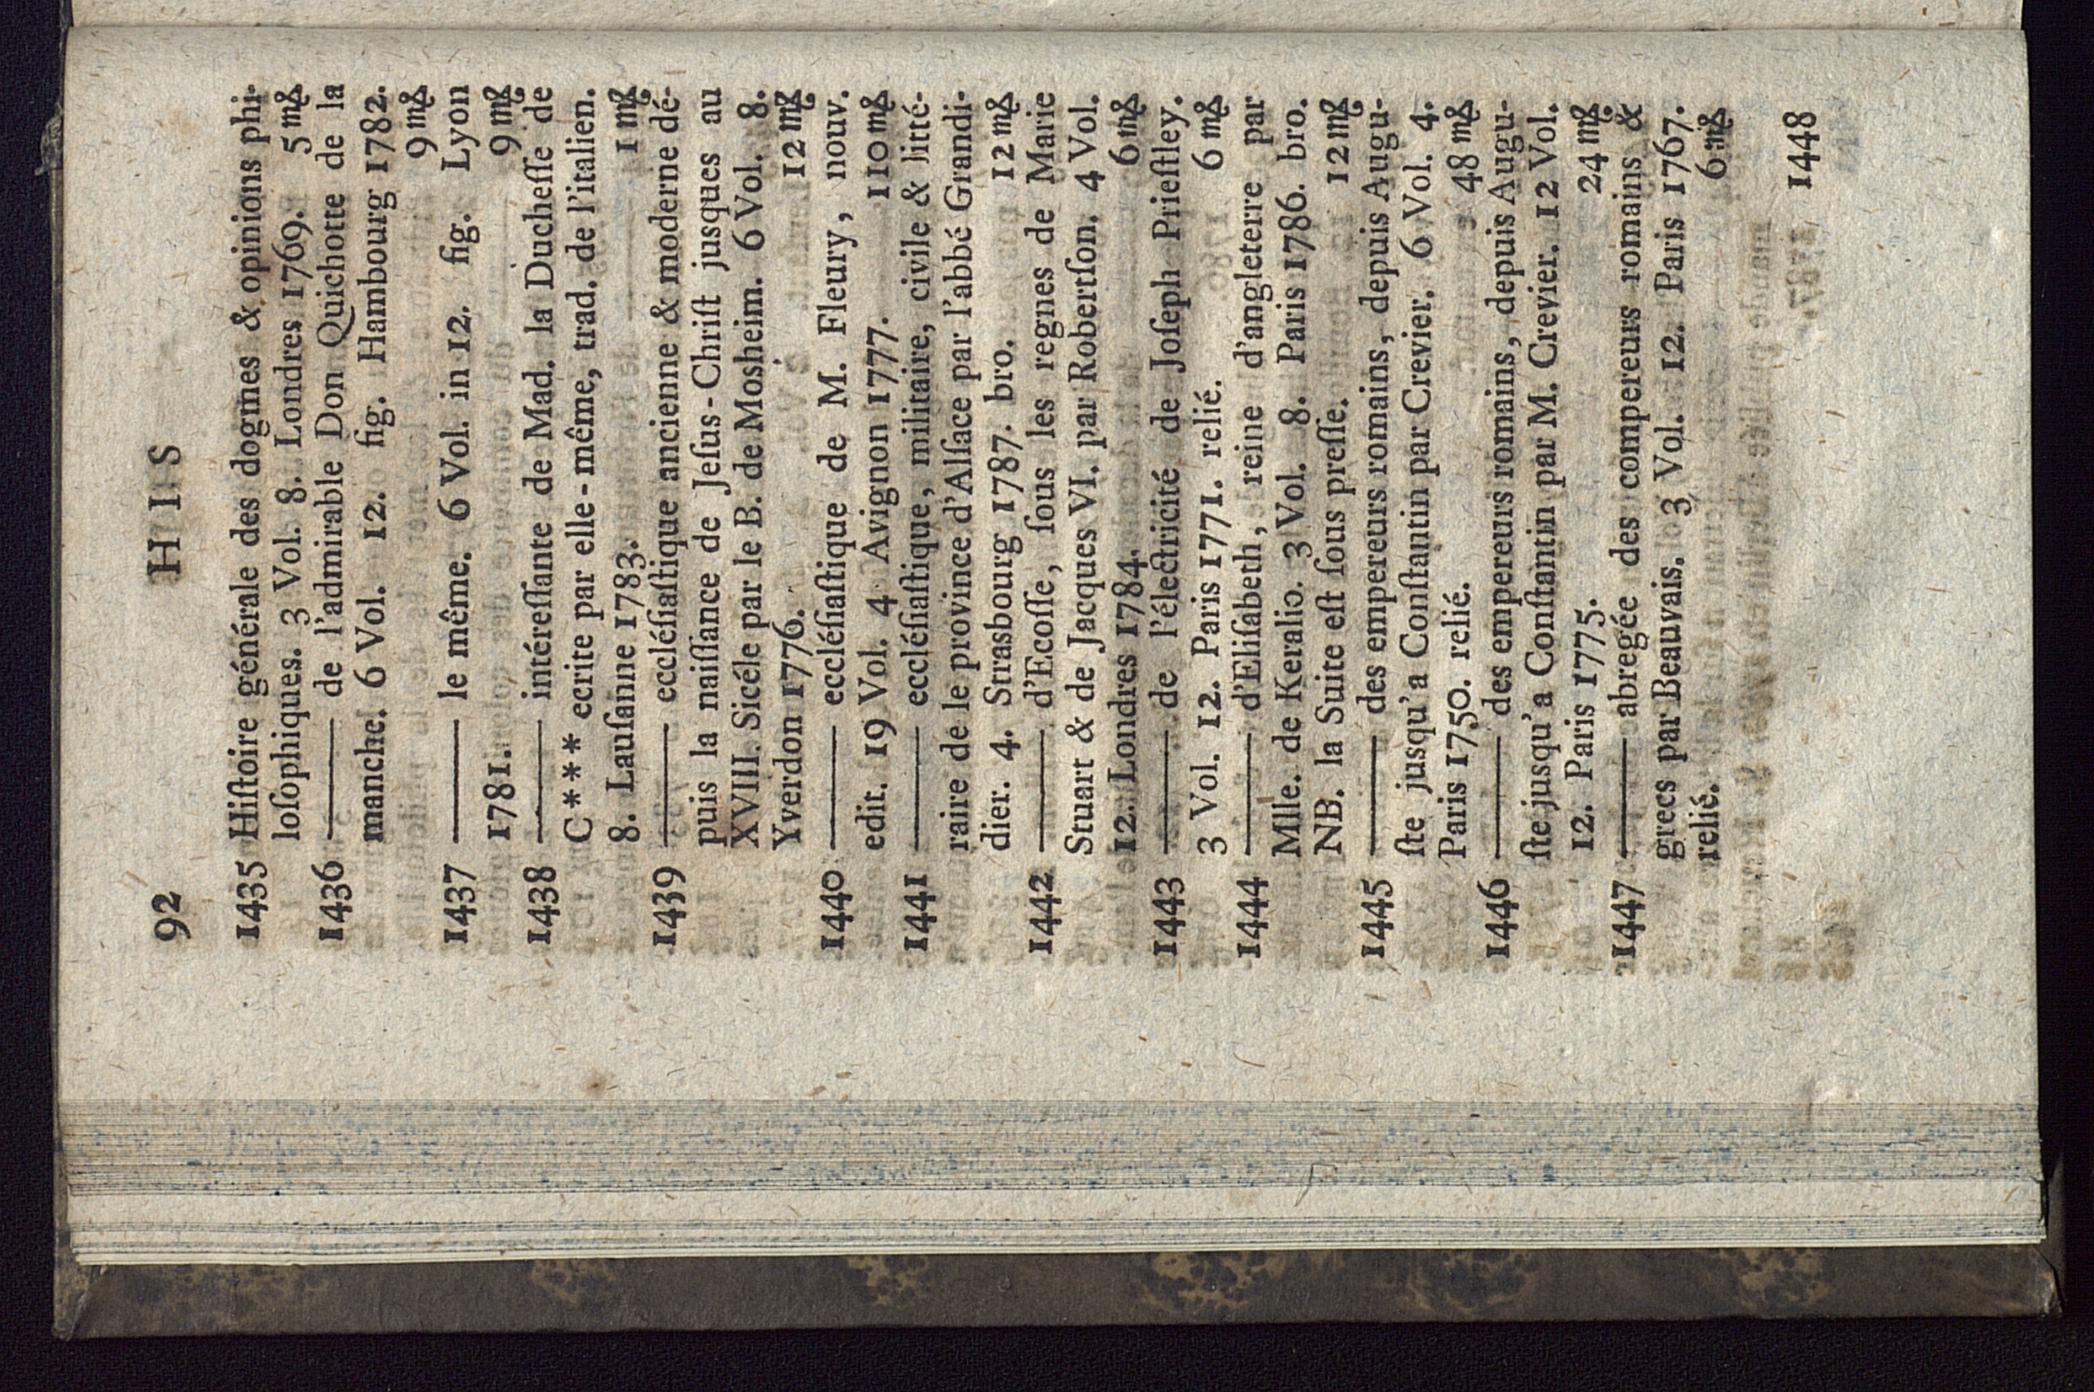 92 HIS
1435 Hiſtoire générale des dogmes & opinions phi-
loſophiques. 3 Vol. 8. Londres 1769. 5 m&
1436 —— de l'admirable Don Quichotte de la
manche. 6 Vol. 12. fig. Hambourg 1782.
9 m&
1437 —— le même. 6 Vol. in 12. fig. Lyon
1781. 9 m&
1438 —— intéreſſante de Mad. la Ducheſſe de
C**** ecrite par elle-même, trad. de l'italien.
8. Lauſanne 1783. 1 m&
1439 —— eccléſiaſtique ancienne & moderne dé-
puis la naiſſance de Jeſus-Chriſt jusques au
XVIII. Sicéle par le B. de Mosheim. 6 Vol. 8.
Yverdon 1776. 12 m&
1440 —— eccléſiaſtique de M. Fleury, nouv.
edit. 19 Vol. 4 Avignon 1777. 110 m&
1441 —— eccléſiaſtique, militaire, civile & litté-
raire de le province d'Alſace par l'abbé Grandi-
dier. 4. Strasbourg 1787. bro. 12 m&
1442 —— d'Ecoſſe, ſous les regnes de Marie
Stuart & de Jacques VI. par Robertſon. 4 Vol.
12. Londres 1784. 6 m&
1443 —— de l'électricité de Joſeph Prieſtley.
3 Vol. 12. Paris 1771. relié. 6 m&
1444 —— d'Eliſabeth, reine d'angleterre par
Mlle. de Keralio. 3 Vol. 8. Paris 1786. bro.
NB. la Suite eſt ſous preſſe. 12 m&
1445 —— des empereurs romains, depuis Augu-
ſte jusqu'a Conſtantin par Crevier. 6 Vol. 4.
Paris 1750. relié. 48 m&
1446 —— des empereurs romains, depuis Augu-
ſte jusqu'a Conſtantin par M. Crevier. 12 Vol.
12. Paris 1775. 24 m&
1447 —— abregée des compereurs romains &
grecs par Beauvais. 3 Vol. 12. Paris 1767.
relié. 6 m&
1448